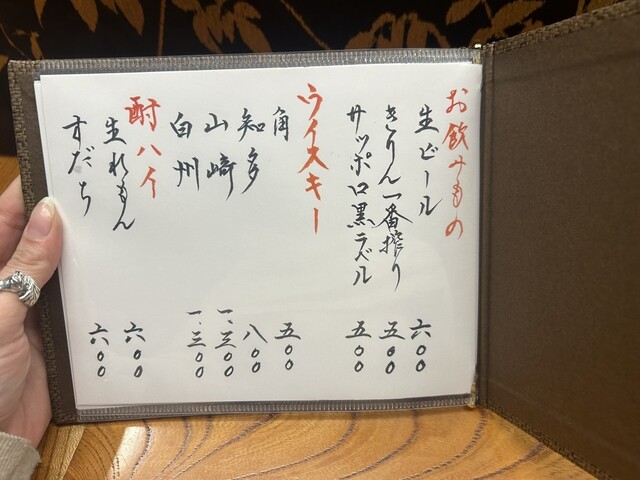 お飲みもの
生ビール 六〇〇
きりん一番搾り 五〇〇
サッポロ黒ラベル 五〇〇
ウイスキー
角 五〇〇
知多 八〇〇
山崎 一、三〇〇
白州 一、三〇〇
酎ハイ
生れもん 六〇〇
すだち 六〇〇